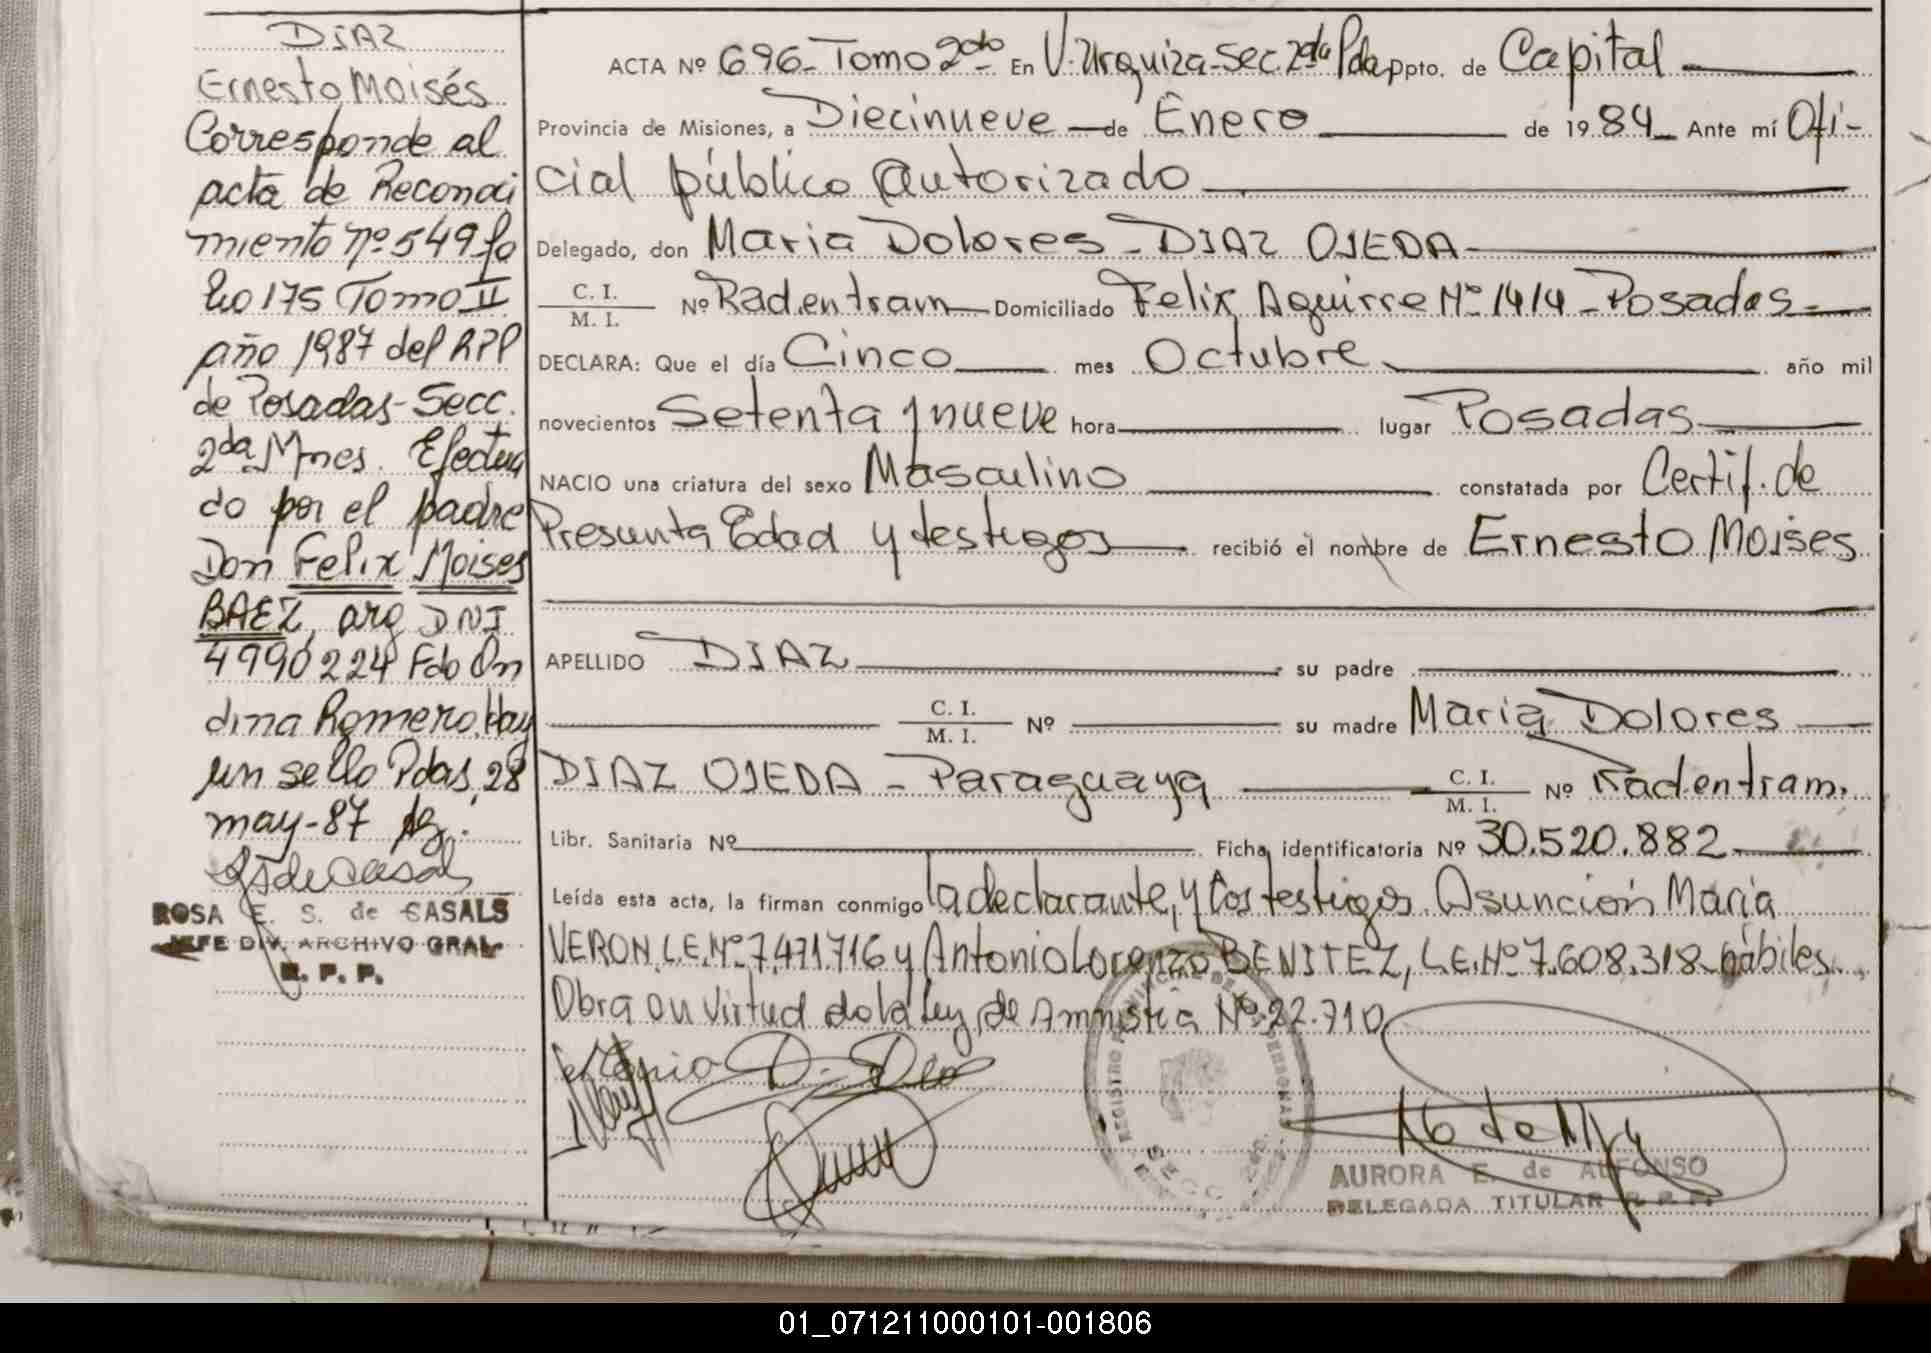 DIAZ
Ernesto Moisés
Corresponde al
acta de Reconoci
miento nº 549 fo
lio 175 Tomo II
año 1987 del RPP
de Posadas - Secc.
2da Mnes. Efectua
do por el padre
Don Felix Moises
BAEZ, arg DNI
4990224 Fdo On
dina Romero. Hay
un sello Pdas, 28
may-87
ROSA E. S. de CASALS
JEFE DIV. ARCHIVO GRAL.
R. P. P.
ACTA Nº 696 - Tomo 2do En V. Urquiza - Sec. 2da Pdas Dpto. de Capital
Provincia de Misiones, a Diecinueve de Enero de 1984 Ante mí Ofi-
cial público autorizado
Delegado, don Maria Dolores - DIAZ OJEDA
C. I. / M. I. Nº Rad.entram Domiciliado Felix Aguirre Nº 1414 - Posadas
DECLARA: Que el día Cinco mes Octubre año mil
novecientos Setenta y nueve hora lugar Posadas
NACIO una criatura del sexo Masculino constatada por Certif. de
Presunta Edad y testigos recibió el nombre de Ernesto Moises
APELLIDO DIAZ su padre
C. I. / M. I. Nº su madre Maria Dolores
DIAZ OJEDA - Paraguaya C. I. / M. I. Nº Rad.entram.
Libr. Sanitaria Nº Ficha identificatoria Nº 30.520.882
Leída esta acta, la firman conmigo la declarante, y los testigos Asunción María
VERON, L.E. Nº 7.471.716 y Antonio Lorenzo BENITEZ, L.E. Nº 7.608.318 hábiles.
Obra en virtud de la Ley de Amnistia Nº 22.710
REGISTRO PROVINCIAL DE LAS PERSONAS
SECC. 2da
AURORA E. de ALFONSO
DELEGADA TITULAR R. P. P.
01_071211000101-001806